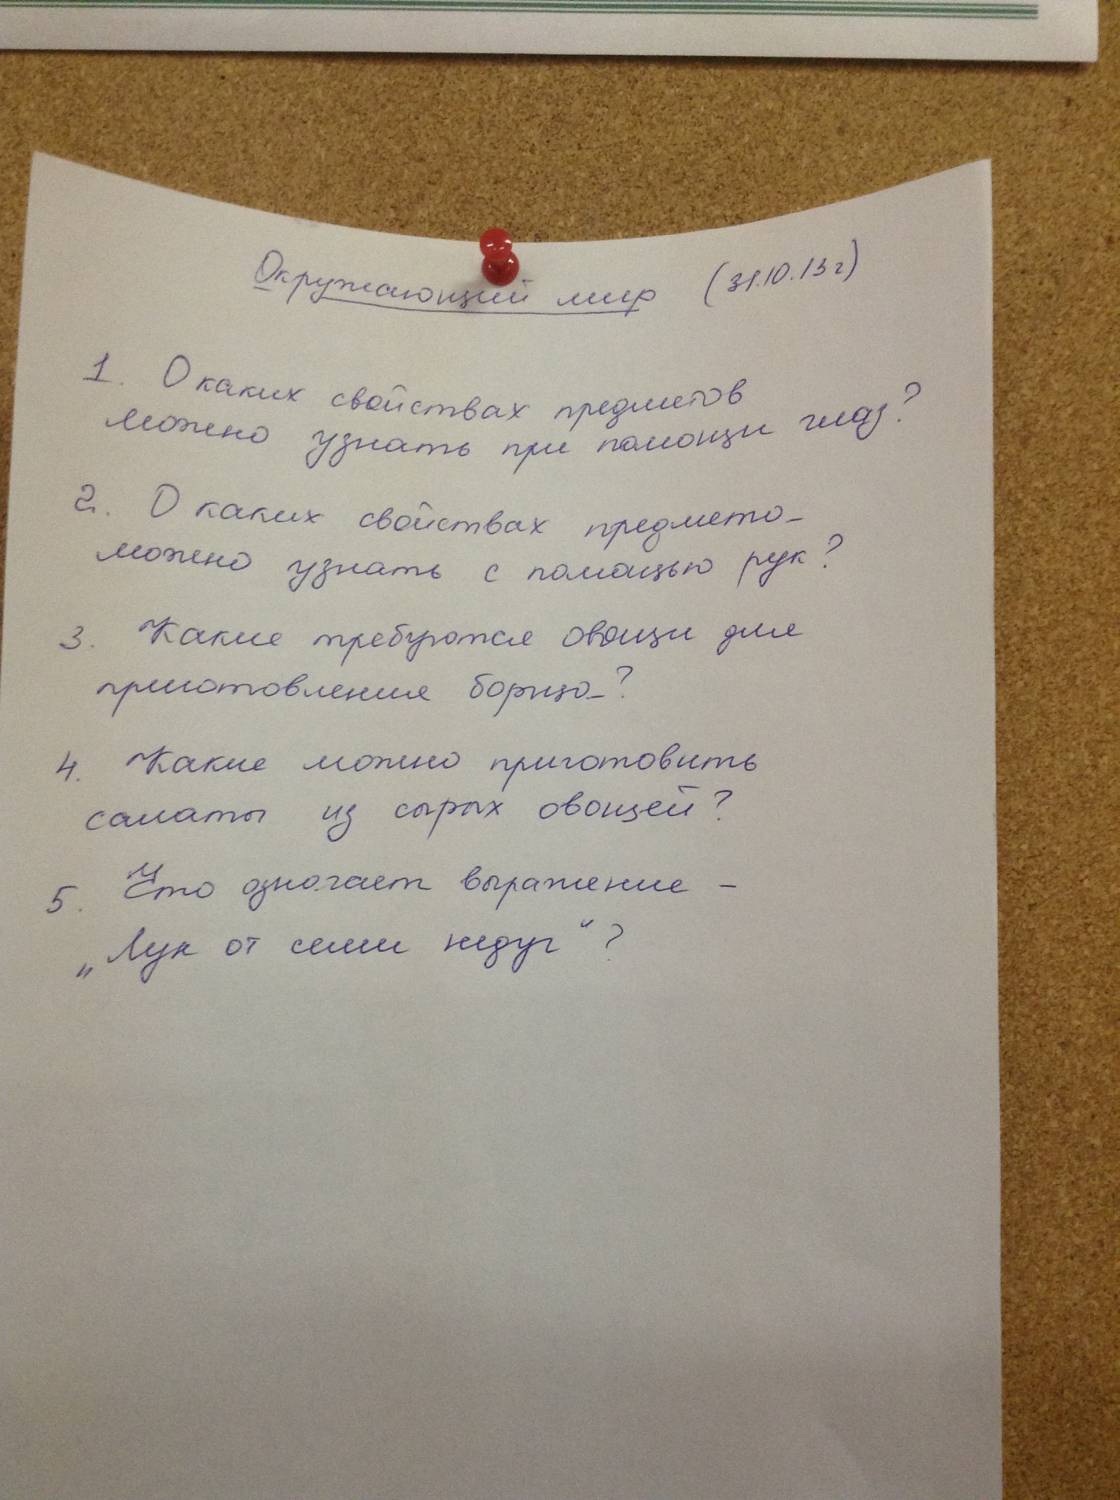 Окружающий мир (31.10.13г)
1. О каких свойствах предметов
можно узнать при помощи глаз?
2. О каких свойствах предмето_
можно узнать с помощью рук?
3. Какие требуются овощи для
приготовления борща_?
4. Какие можно приготовить
салаты из сырых овощей?
5. Что означает выражение –
„Лук от семи недуг“?